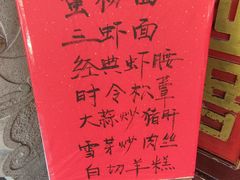 蟹粉面
三虾面
经典虾腰
时令松蕈
大蒜炒猪肝
雪芽炒肉丝
白切羊糕